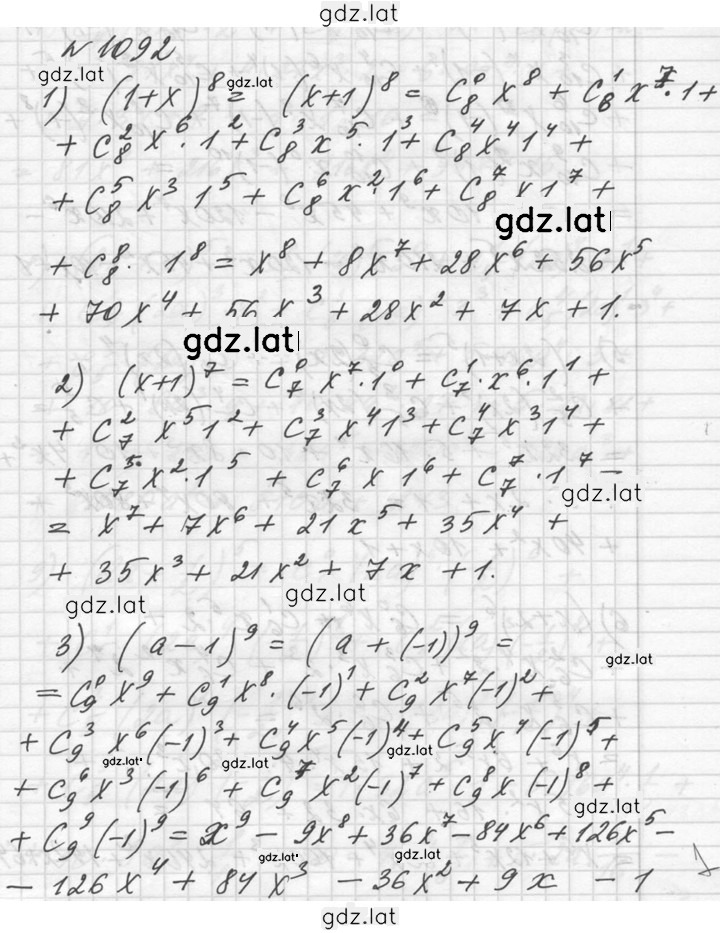 gdz.lat
№ 1092
gdz.lat
1) (1+x)^8 = (x+1)^8 = C_8^0 x^8 + C_8^1 x^7·1 +
gdz.lat
+ C_8^2 x^6·1^2 + C_8^3 x^5·1^3 + C_8^4 x^4 1^4 +
+ C_8^5 x^3 1^5 + C_8^6 x^2·1^6 + C_8^7 x 1^7 +
gdz.lat
+ C_8^8· 1^8 = x^8 + 8x^7 + 28x^6 + 56x^5
+ 70x^4 + 56x^3 + 28x^2 + 7x + 1.
gdz.lat
2) (x+1)^7 = C_7^0 x^7·1^0 + C_7^1·x^6·1^1 +
+ C_7^2 x^5 1^2 + C_7^3 x^4 1^3 + C_7^4 x^3 1^4 +
+ C_7^5 x^2·1^5 + C_7^6 x 1^6 + C_7^7·1^7 –
gdz.lat
= x^7 + 7x^6 + 21x^5 + 35x^4 +
+ 35x^3 + 21x^2 + 7x + 1.
gdz.lat
gdz.lat
3) (a-1)^9 = (a + (-1))^9 =
gdz.lat
= C_9^0 x^9 + C_9^1 x^8·(-1)^1 + C_9^2 x^7 (-1)^2 +
+ C_9^3 x^6 (-1)^3 + C_9^4 x^5 (-1)^4 + C_9^5 x^4 (-1)^5 +
gdz.lat
gdz.lat
gdz.lat
+ C_9^6 x^3 (-1)^6 + C_9^7 x^2 (-1)^7 + C_9^8 x (-1)^8 +
gdz.lat
+ C_9^9 (-1)^9 = x^9 - 9x^8 + 36x^7 - 84x^6 + 126x^5 -
gdz.lat
gdz.lat
- 126x^4 + 84x^3 - 36x^2 + 9x - 1
gdz.lat